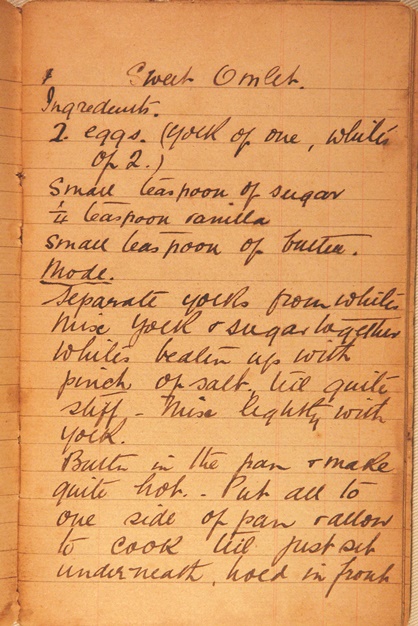 Sweet Omlet.
Ingredients.
2. eggs. (york of one, whites
of 2.)
Small teaspoon of sugar
¼ teaspoon vanilla
small teaspoon of butter.
Mode.
Separate yorks from whites
Mix york & sugar together
Whites beaten up with
pinch of salt, till quite
stiff - Mix lightly with
york.
Butter in the pan & make
quite hot. - Put all to
one side of pan & allow
to cook till just set
underneath, hold in front